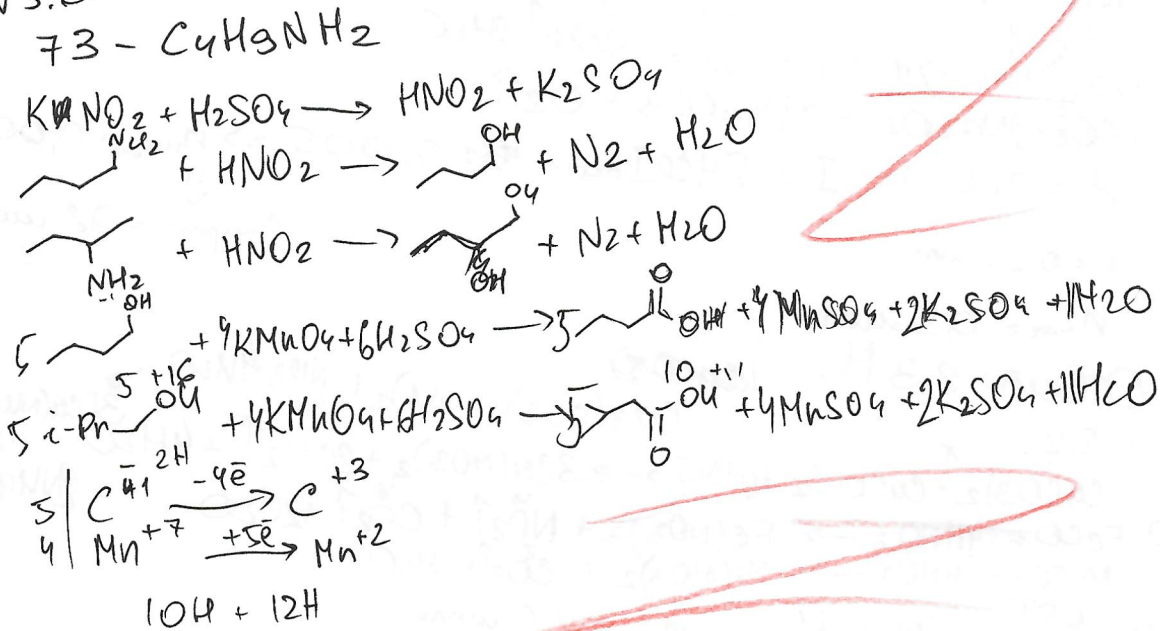 73 - C4H9NH2
KNO2 + H2SO4 → HNO2 + K2SO4
NH2 + HNO2 → OH + N2 + H2O
NH2 + HNO2 → OH OH + N2 + H2O
5 OH + 4KMnO4 + 6H2SO4 → 5 O OH + 4MnSO4 + 2K2SO4 + 11H2O
5 i-Pr OH + 4KMnO4 + 6H2SO4 → 5 O OH + 4MnSO4 + 2K2SO4 + 11H2O
5 +16 10 +11
2H
5 | C -1 -4ē → C +3
4 | Mn +7 +5ē → Mn +2
10H + 12H